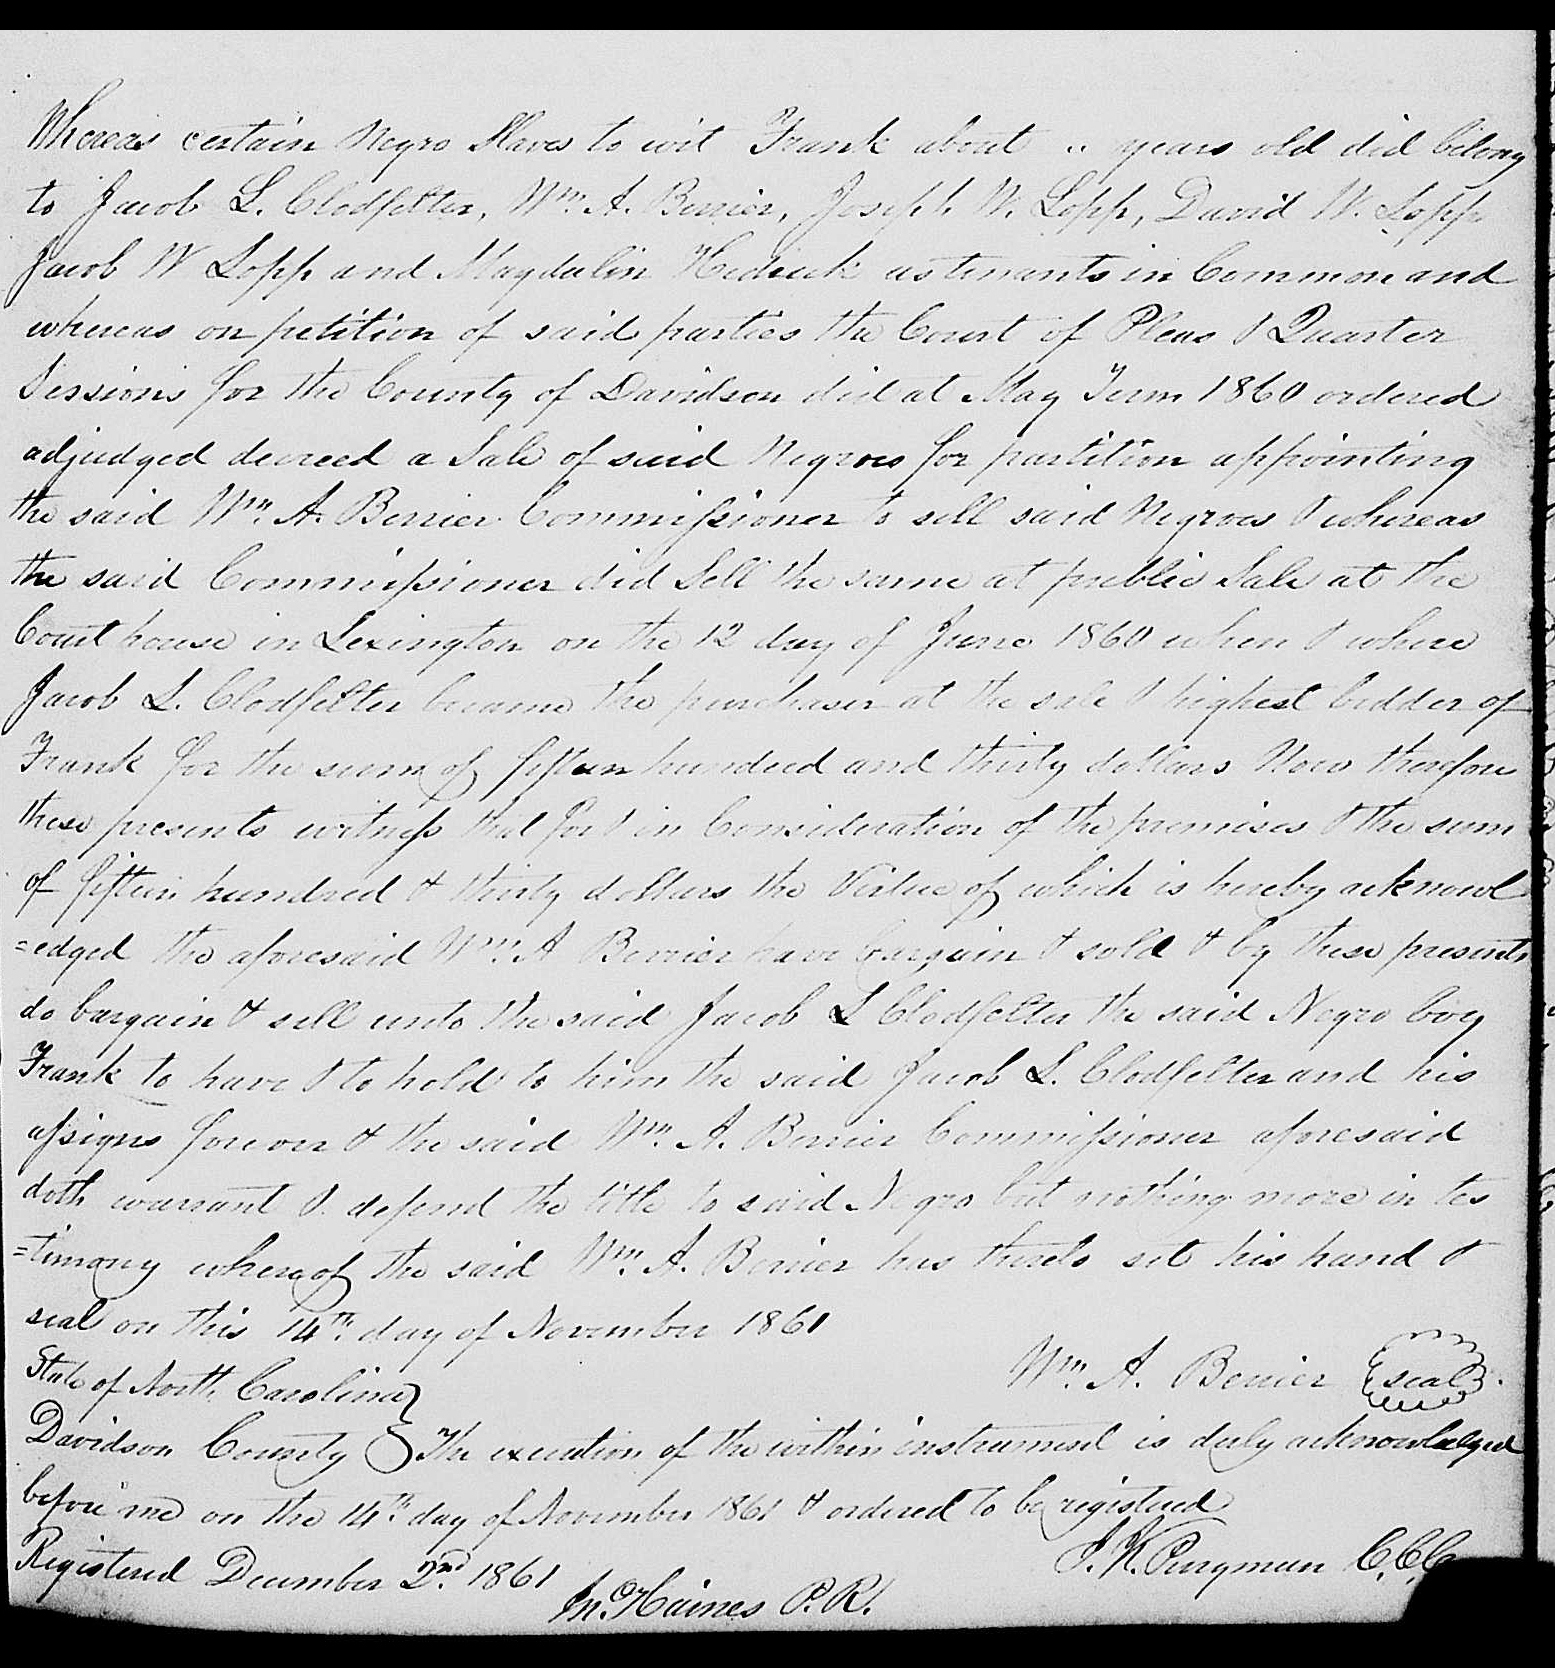 Whereas certain Negro Slaves to wit Frank about " years old did belong
to Jacob L. Clodfelter, Wm. A. Berrier, Joseph W. Lopp, David W. Lopp
Jacob W Lopp and Magdalin Hedrick as tenants in Common and
whereas on petition of said parties the Court of Pleas & Quarter
Sessions for the County of Davidson did at May Term 1860 ordered
adjudged decreed a Sale of said Negroes for partition appointing
the said Wm. A. Berrier Commissioner to sell said Negroes & whereas
the said Commissioner did Sell the same at public Sale at the
Court house in Lexington on the 12 day of June 1860 when & where
Jacob L. Clodfelter became the purchaser at the sale & highest bidder of
Frank for the sum of fifteen hundred and thirty dollars Now therefore
these presents witness that for & in Consideration of the premises & the sum
of fifteen hundred & thirty dollars the Virtue of which is hereby acknowl
=edged the aforesaid Wm. A Berrier have bargain & sold & by these presents
do bargain & sell unto the said Jacob L Clodfelter the said Negro boy
Frank to have & to hold to him the said Jacob L. Clodfelter and his
assigns forever & the said Wm. A. Berrier Commissioner aforesaid
doth warrant & defend the title to said Negro but nothing more in tes
=timony whereof the said Wm. A. Berrier has thereto set his hand &
seal on this 14th day of November 1861
Wm. A. Berrier (seal)
State of North Carolina
Davidson County } The execution of the within instrument is duly acknowledged
before me on the 14th day of November 1861 & ordered to be registered
Registered December 2nd 1861
C.C.C.
Haines P.R.